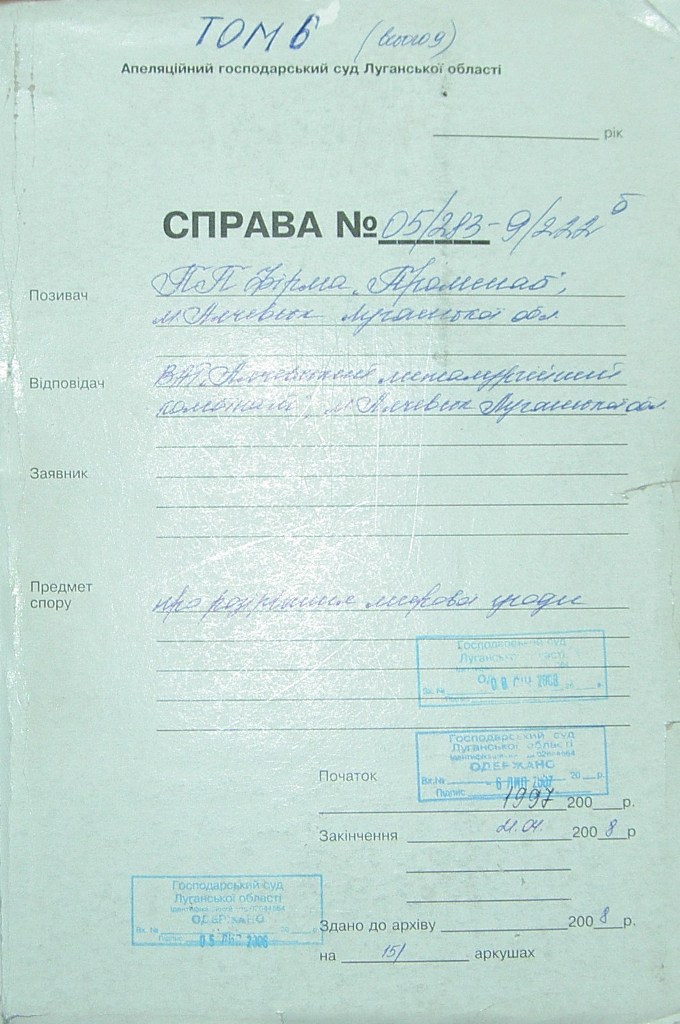 ТОМ 6 (всього 9)
Апеляційний господарський суд Луганської області
рік
СПРАВА № 05/283-9/222б
Позивач ПП Фірма „Промснаб",
м Алчевськ Луганської обл.
Відповідач ВАТ „Алчевський металургійний
комбінат", м Алчевськ Луганської обл.
Заявник
Предмет
спору про розірвання мирової угоди
Господарський суд
Луганської області
Господарський суд
Луганської області
ОДЕРЖАНО
Вх.№ - 6 ЛИП 2007 20 р.
Підпис
Початок 1997 200 р.
Закінчення 21.04. 200 8 р
Господарський суд
Луганської області
ОДЕРЖАНО
Вх. № 20 р.
Підпис 2006
Здано до архіву 200 8 р.
на 151 аркушах